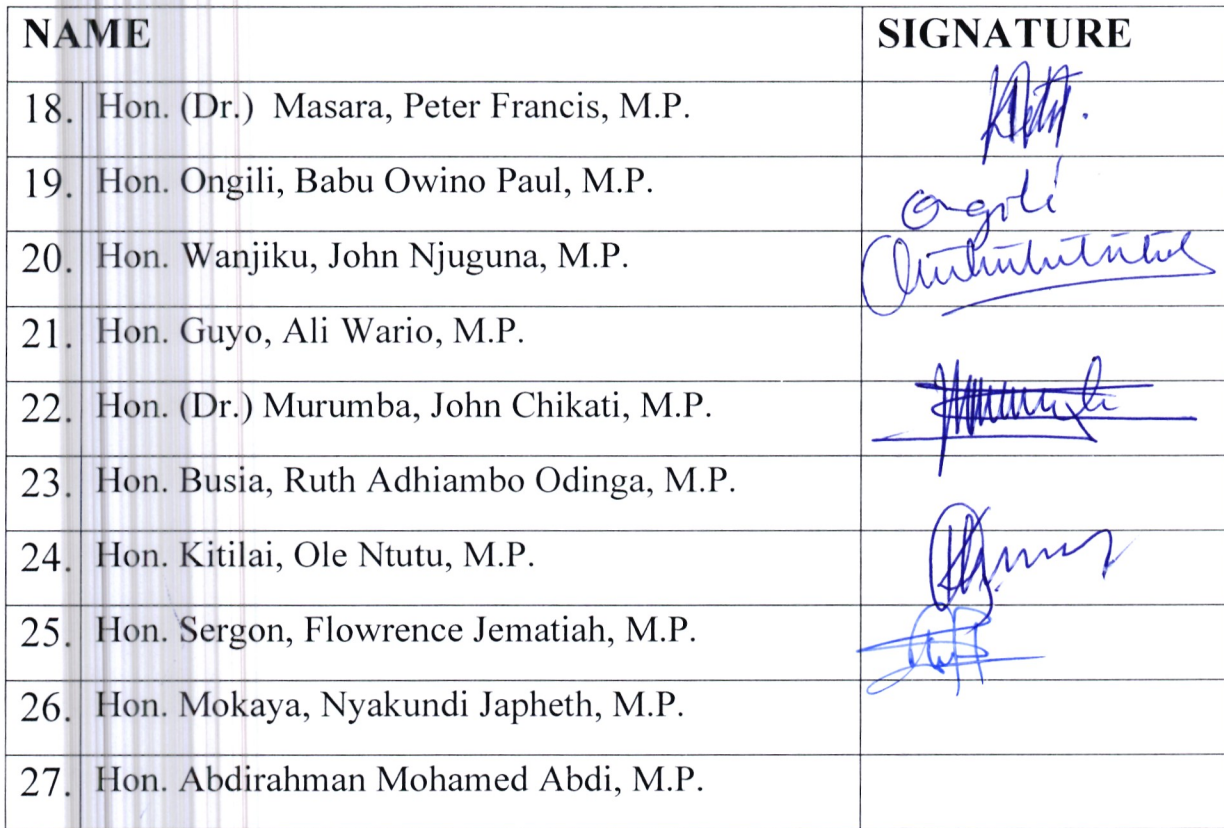 NAME SIGNATURE
18. Hon. (Dr.) Masara, Peter Francis, M.P.
19. Hon. Ongili, Babu Owino Paul, M.P. Ongili
20. Hon. Wanjiku, John Njuguna, M.P.
21. Hon. Guyo, Ali Wario, M.P.
22. Hon. (Dr.) Murumba, John Chikati, M.P.
23. Hon. Busia, Ruth Adhiambo Odinga, M.P.
24. Hon. Kitilai, Ole Ntutu, M.P.
25. Hon. Sergon, Flowrence Jematiah, M.P.
26. Hon. Mokaya, Nyakundi Japheth, M.P.
27. Hon. Abdirahman Mohamed Abdi, M.P.